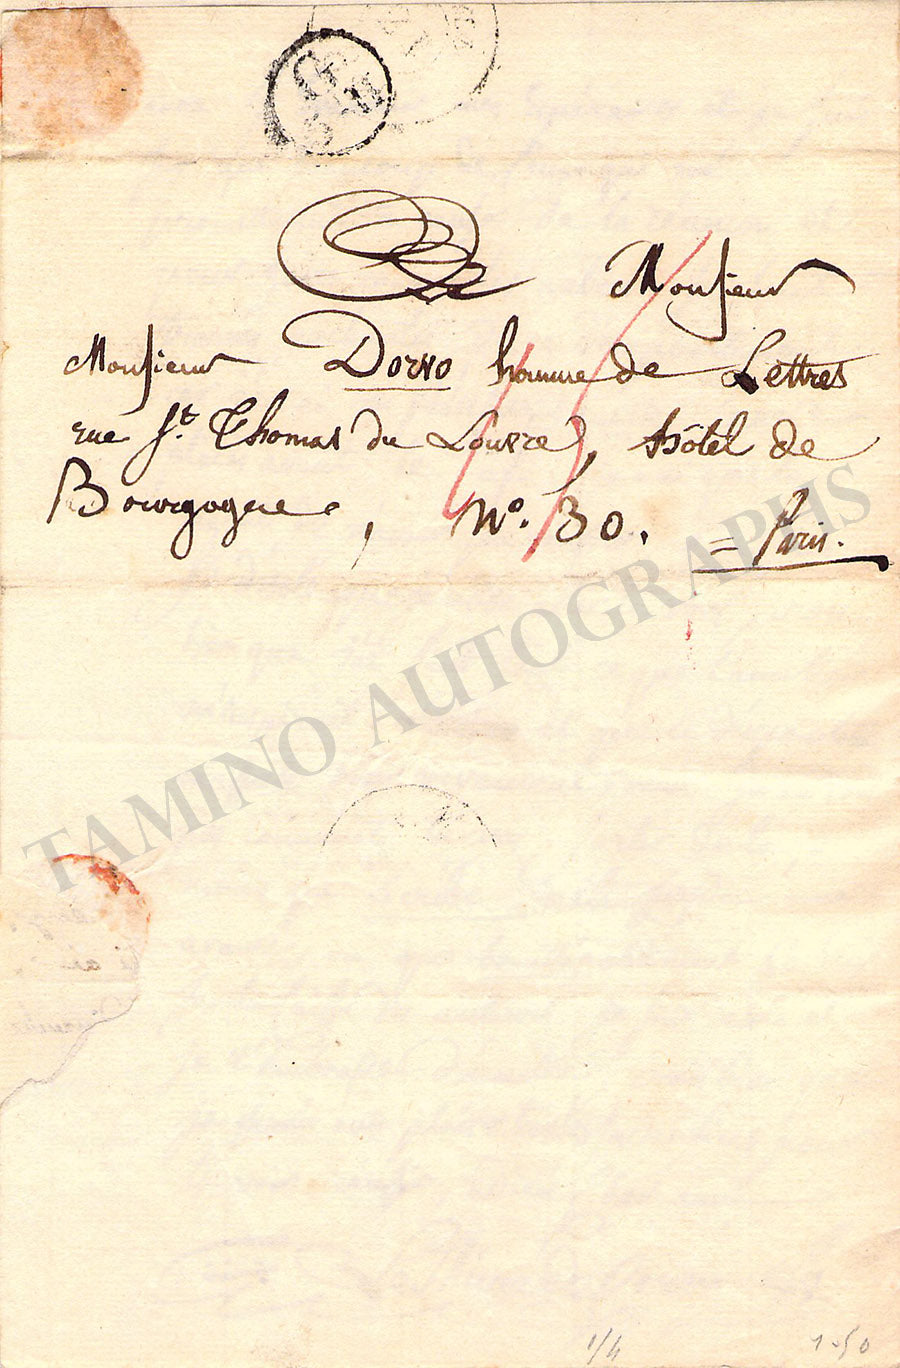 Monsieur
Monsieur Dorvo homme de Lettres
rue St. Thomas du Louvre, hôtel de
Bourgogne, No. 30. = Paris.
TAMINO AUTOGRAPHS
1/4
1-50